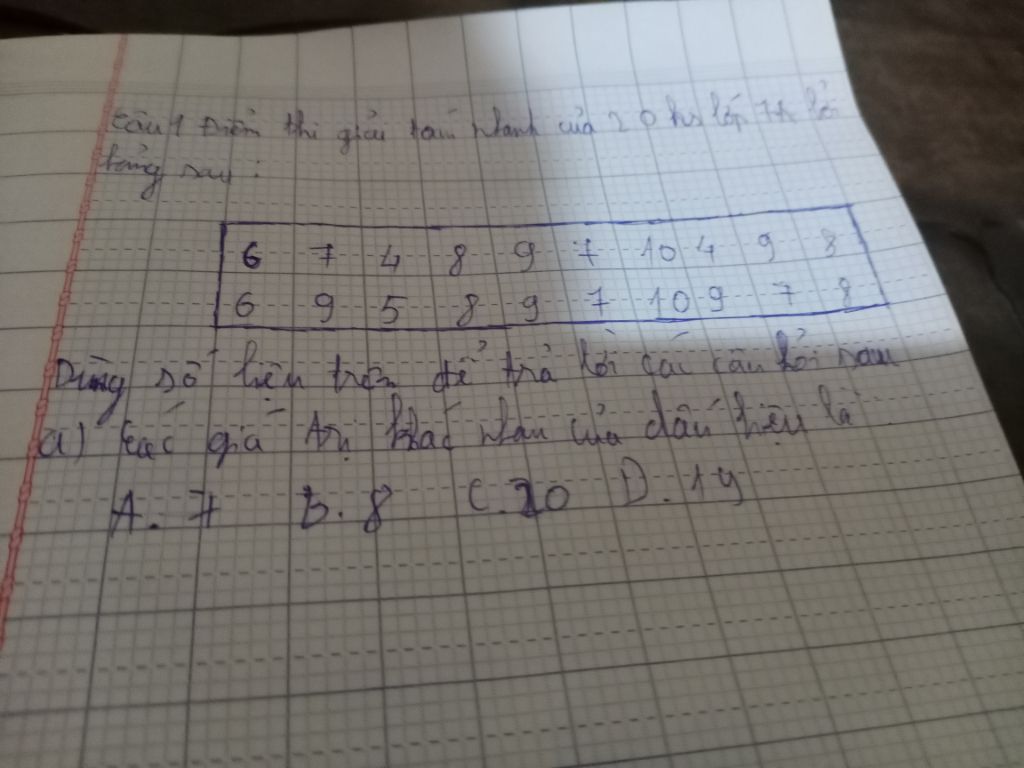 Câu 1 Điểm thi giải toán nhanh của 20 hs lớp 7A bởi
bảng sau :
6 7 4 8 9 7 10 4 9 8
6 9 5 8 9 7 10 9 7 8
Dùng số liệu trên để trả lời các câu hỏi sau
a) các giá trị khác nhau của dấu hiệu là
A. 7 B. 8 C. 20 D.